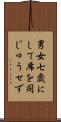 男女七歳に
して席を同
じゅうせず